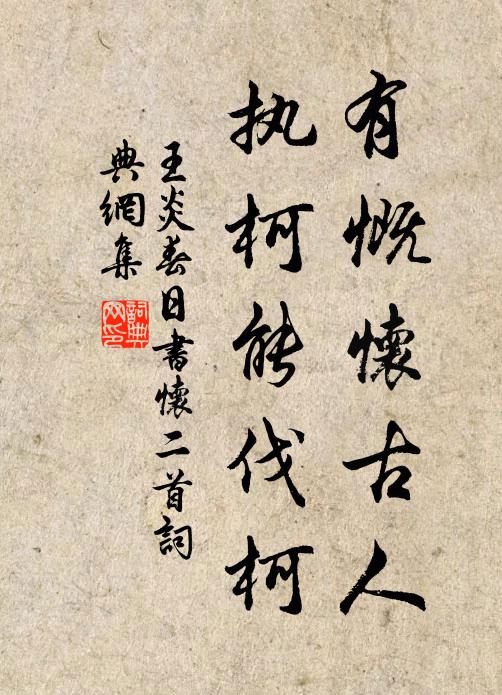 有慨懷古人
执柯能伐柯
王炎春日書懷二首詞
典網集
詞典
网印